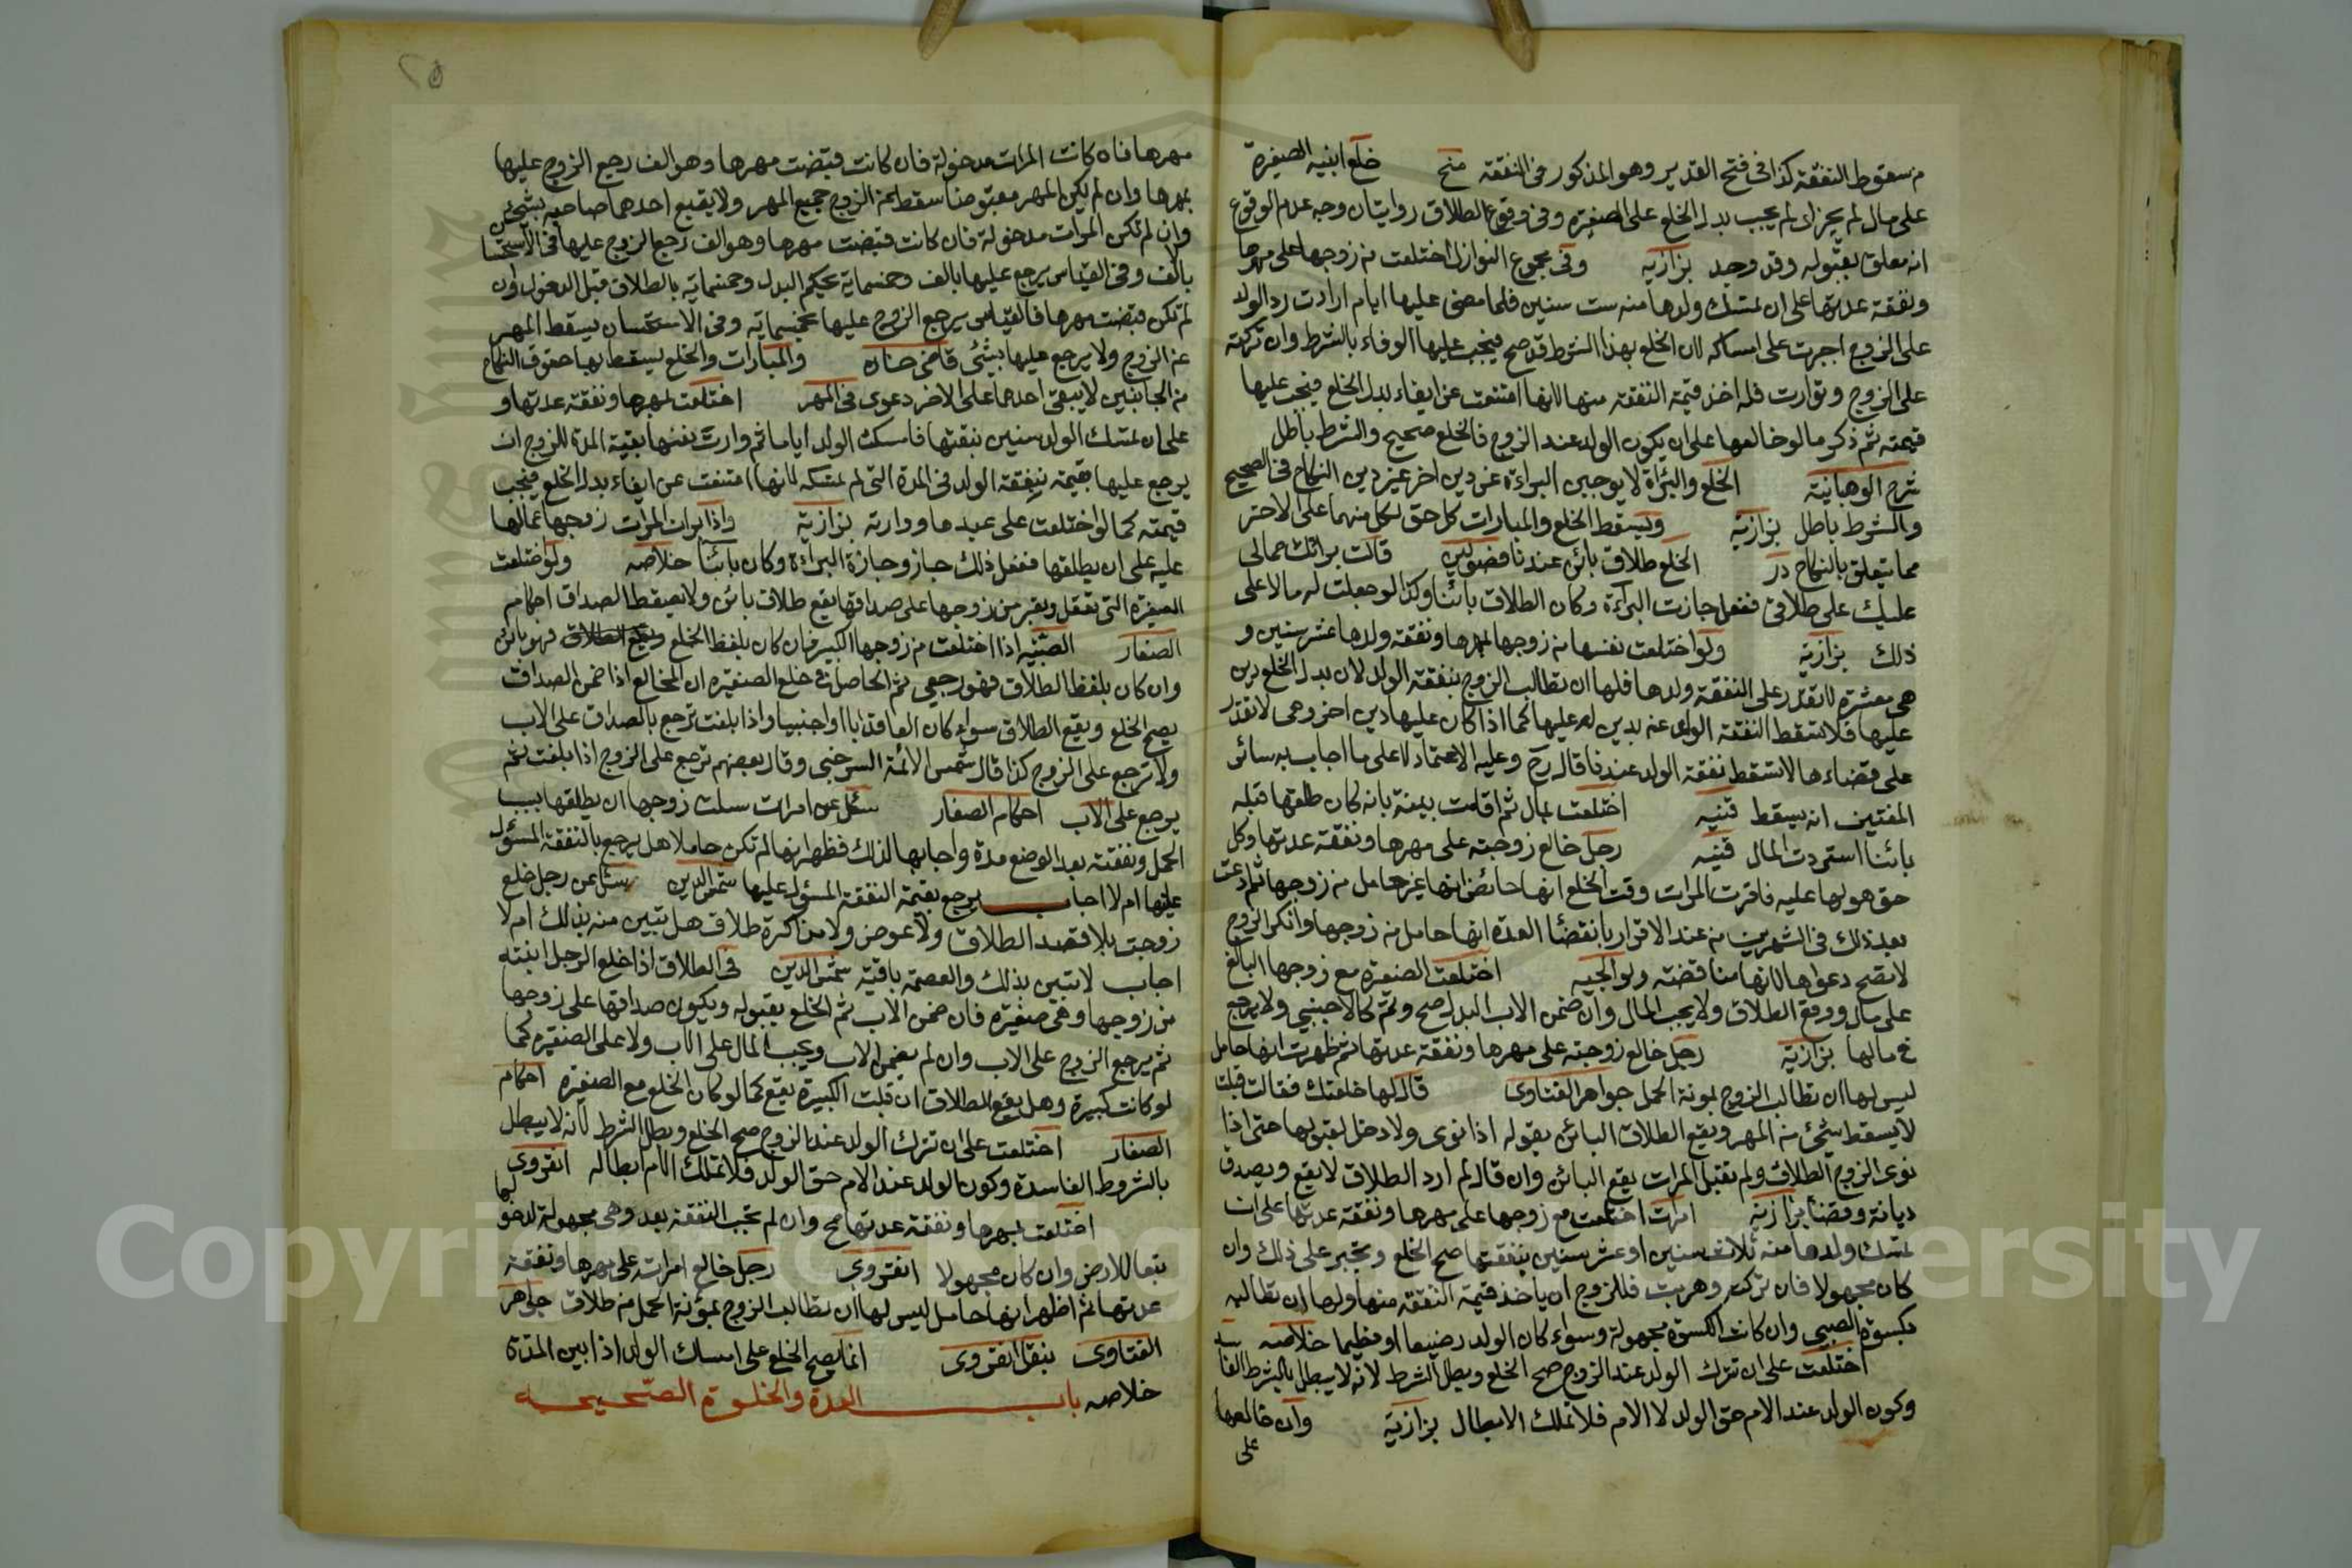 من سقوط النفقة كذا في فتح القدير وهو المذكور في النفقة منح خلع ابنيه الصغيرة
على مال لم يجز اى لم يجب بدل الخلع على الصغيرة وفى وقوع الطلاق روايتان وجه عدم الوقوع
انه معلق بقبوله وقد وجد بزازية وفى مجموع النوازل اختلعت من زوجها على مهرها
ونفقة عدتها على ان تمسك ولدها منه ست سنين فلما مضى عليها ايام ارادت رد الولد
على الزوج اجبرت على امساكه لان الخلع بهذا الشرط قد صح فيجب عليها الوفاء بالشرط وان تركته
على الزوج وتوارت فله اخذ قيمة النفقة منها لانها امتنعت عن ايفاء بدل الخلع فيجب عليها
قيمته ثم ذكر ما لو خالعها على ان يكون الولد عند الزوج فالخلع صحيح والشرط باطل
شرح الوهبانية الخلع والبراة لا يوجبى البراءة عن دين اخر غير دين النكاح فى الصحيح
والشرط باطل بزازية ويسقط الخلع والمبارات كل حق لكل منهما على الاخر
مما يتعلق بالنكاح درر الخلع طلاق بائن عندنا قالت براتك عمالى
عليك على طلاقى ففعل جازت البراءة وكان الطلاق بائنا وكذا لو جعلت له مالا على
ذلك بزازية ولو اختلعت نفسها من زوجها بمهرها ونفقة ولدها عشر سنين و
هى معشرة لا تقدر على النفقة ولدها فلها ان تطالب الزوج بنفقة الولد لان بدل الخلع دين
عليها فلا تسقط النفقة الولد عنه بدين له عليها كما اذا كان عليها دين اخر وهى لا تقدر
على قضاءها لا تسقط نفقة الولد عندنا قال رح وعليه الاعتماد لا على ما اجاب به سائر
المفتين انه يسقط قنيه اختلعت بمال ثم اقامت بينة بانه كان طلقها قبله
بائنا استردت المال قنيه رجل خالع زوجته على مهرها ونفقة عدتها وكل
حق هو لها عليه فاقرت المرات وقت الخلع انها حائض انها غير حامل من زوجها ثم ادعت
بعد ذلك فى الشهرين من عند الاقرار بانقضا العدة انها حامل من زوجها وانكر الزوج
لا تصح دعواها لانها مناقضة ولوالجيه اختلعت الصغيرة مع زوجها البالغ
على مال ووقع الطلاق ولا يجب المال وان ضمن الاب البدل صح وتم كالاجنبي ولا يرجع
فى مالها بزازية رجل خالع زوجته على مهرها ونفقة عدتها ثم ظهرت انها حامل
ليس لها ان تطالب الزوج بمونة الحمل جواهر الفتاوى قال لها خلعتك فقالت قبلت
لا يسقط شئ من المهر ويقع الطلاق البائن بقوله اذا نوى ولا دخل لقبولها حتى اذا
نوى الزوج الطلاق ولم تقبل المرات يقع البائن وان قال لم ارد الطلاق لا يقع ويصدق
ديانة وقضا بزازيه امرات اختلعت مع زوجها على مهرها ونفقة عدتها على ان
تمسك ولدها منه ثلاث سنين او عشر سنين بنفقتها صح الخلع وتجبر على ذلك وان
كان مجهولا فان تركت وهربت فللزوج ان ياخذ قيمة النفقة منها ولها ان تطالبه
بكسوة الصبى وان كانت الكسوة مجهولة وسواء كان الولد رضيعا او فطيما خلاصه
اختلعت على ان تترك الولد عند الزوج صح الخلع وبطل الشرط لانه لا يبطل بالشرط الفا
وكون الولد عند الام حق الولد لا الام فلا تملك الابطال بزازية وان خالعها
على
٢٥
مهرها فان كانت المرات مدخولة فان كانت قبضت مهرها وهو الف رجع الزوج عليها
بمهرها وان لم يكن المهر مقبوضا سقط عن الزوج جميع المهر ولا يتبع احدهما صاحبه بشئ
وان لم تكن المرات مدخولة فان كانت قبضت مهرها وهو الف رجع الزوج عليها فى الاستحسا
بالف وفى القياس يرجع عليها بالف وخمسماية بحكم البدل وخمسماية بالطلاق قبل الدخول وان
لم تكن قبضت مهرها فالقياس يرجع الزوج عليها بخمسماية وفى الاستحسان يسقط المهر
عن الزوج ولا يرجع عليها بشئ قاضى خان والمبارات والخلع يسقط بها حقوق النكاح
من الجانبين لا يبقى احدهما على الاخر دعوى فى المهر اختلعت بمهرها ونفقة عدتها و
على ان تمسك الولد سنين بنفقتها فامسكت الولد اياما ثم وارت نفسها بقية المدة للزوج ان
يرجع عليها بقيمة نفقة الولد فى المدة التى لم تمسكه لانها امتنعت عن ايفاء بدل الخلع فيجب
قيمته كما لو اختلعت على عبدها ووارته بزازية واذا برات المرات زوجها عمالها
عليه على ان يطلقها ففعل ذلك جاز وجازة البراءة وكان بائنا خلاصه ولو اختلعت
الصغيرة التى تعقل وتعبر من زوجها على صداقها يقع طلاق بائن ولا يسقط الصداق احكام
الصغار الصبية اذا اختلعت من زوجها الكبير فان كان بلفظ الخلع فهو بائن
وان كان بلفظ الطلاق فهو رجعى ثم الحاصل فى خلع الصغيرة ان المخالع اذا ضمن الصداق
يصح الخلع ويقع الطلاق سواء كان العاقد ابا او اجنبيا واذا بلغت ترجع بالصداق على الاب
ولا ترجع على الزوج كذا قال شمس الائمة السرخسى وقال بعضهم ترجع على الزوج اذا بلغت ثم
يرجع على الاب احكام الصغار سئل عن امرات سئلت زوجها ان يطلقها بسبب
الحمل ونفقته بعد الوضع مدة واجابها لذلك فظهر انها لم تكن حاملا هل يرجع بالنفقة المسئول
عليها ام لا اجاب يرجع بقيمة النفقة المسئول عليها شمس الدين سئل عن رجل خلع
زوجته بلا قصد الطلاق ولا عوض ولا مذاكرة طلاق هل تبين منه بذلك ام لا
اجاب لا تبين بذلك والعصمة باقية شمس الدين فى الطلاق اذا خلع الرجل ابنته
من زوجها وهى صغيرة فان ضمن الاب تم الخلع بقبوله ويكون صداقها على زوجها
ثم يرجع الزوج على الاب وان لم يضمن الاب ويجب المال على الاب ولا على الصغيرة كما
لو كانت كبيرة وهل يقع الطلاق ان قبلت الكبيرة يقع كما لو كان الخلع مع الصغيرة احكام
الصغار اختلعت على ان تترك الولد عند الزوج صح الخلع وبطل الشرط لانه لا يبطل
بالشروط الفاسدة وكون الولد عند الام حق الولد فلا تملك الام ابطاله انقروى
اختلعت بمهرها ونفقة عدتها صح وان لم تجب النفقة بعد وهى مجهولة لدخولها
تبعا للارض وان كان مجهولا انقروى رجل خالع امراته على مهرها ونفقة
عدتها ثم اظهر انها حامل ليس لها ان تطالب الزوج بمؤنة الحمل من طلاق جواهر
الفتاوى بنقل انقروى انما يصح الخلع على امساك الولد اذا بين المدة
خلاصه باب العدة والخلوة الصحيحه
Copyright © King Saud University